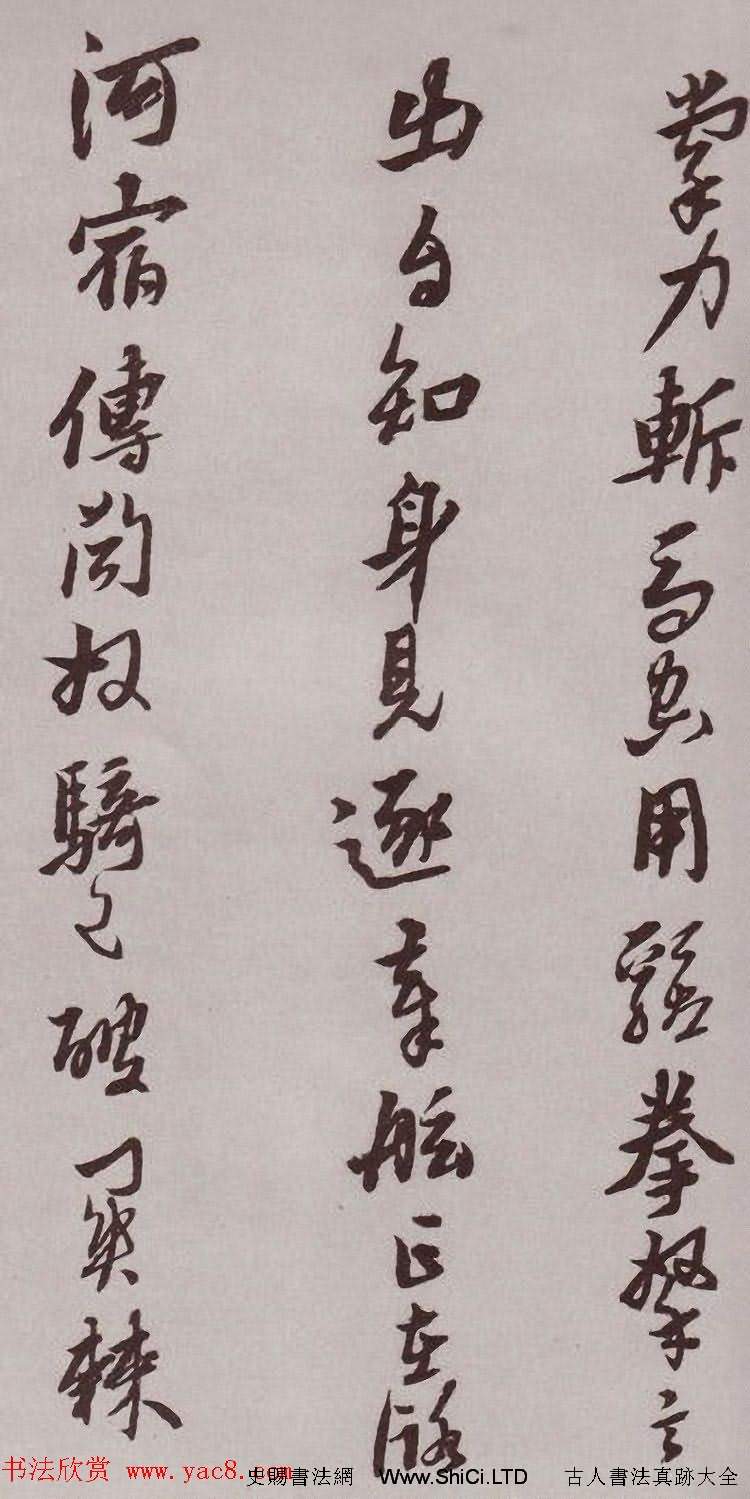 掌力斬馬用拳拏言
出自知身見逐車舷正在
河宿傳奴騎已破棘
书法欣赏 www.yac8.com
史賜書法網 www.ShiCi.LTD 古人書法真跡大全